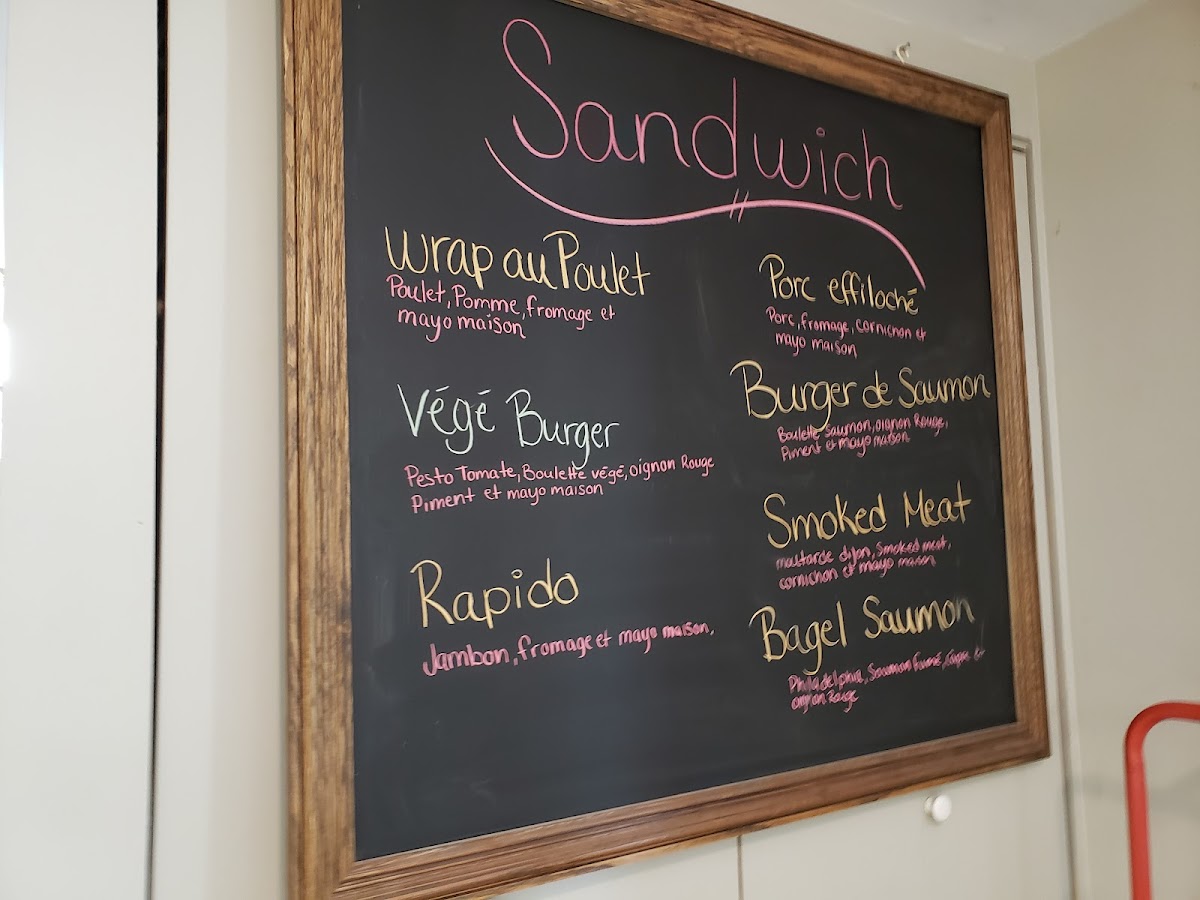 Sandwich
Wrap au Poulet
Poulet, Pomme, fromage et
mayo maison
Végé Burger
Pesto Tomate, Boulette végé, oignon Rouge
Piment et mayo maison
Rapido
Jambon, fromage et mayo maison,
Porc effiloché
Porc, fromage, cornichon et
mayo maison
Burger de Saumon
Boulette Saumon, oignon Rouge,
Piment et mayo maison
Smoked Meat
moutarde dijon, Smoked meat,
cornichon et mayo maison
Bagel Saumon
Philadelphia, Saumon fumé, câpre et
oignon Rouge